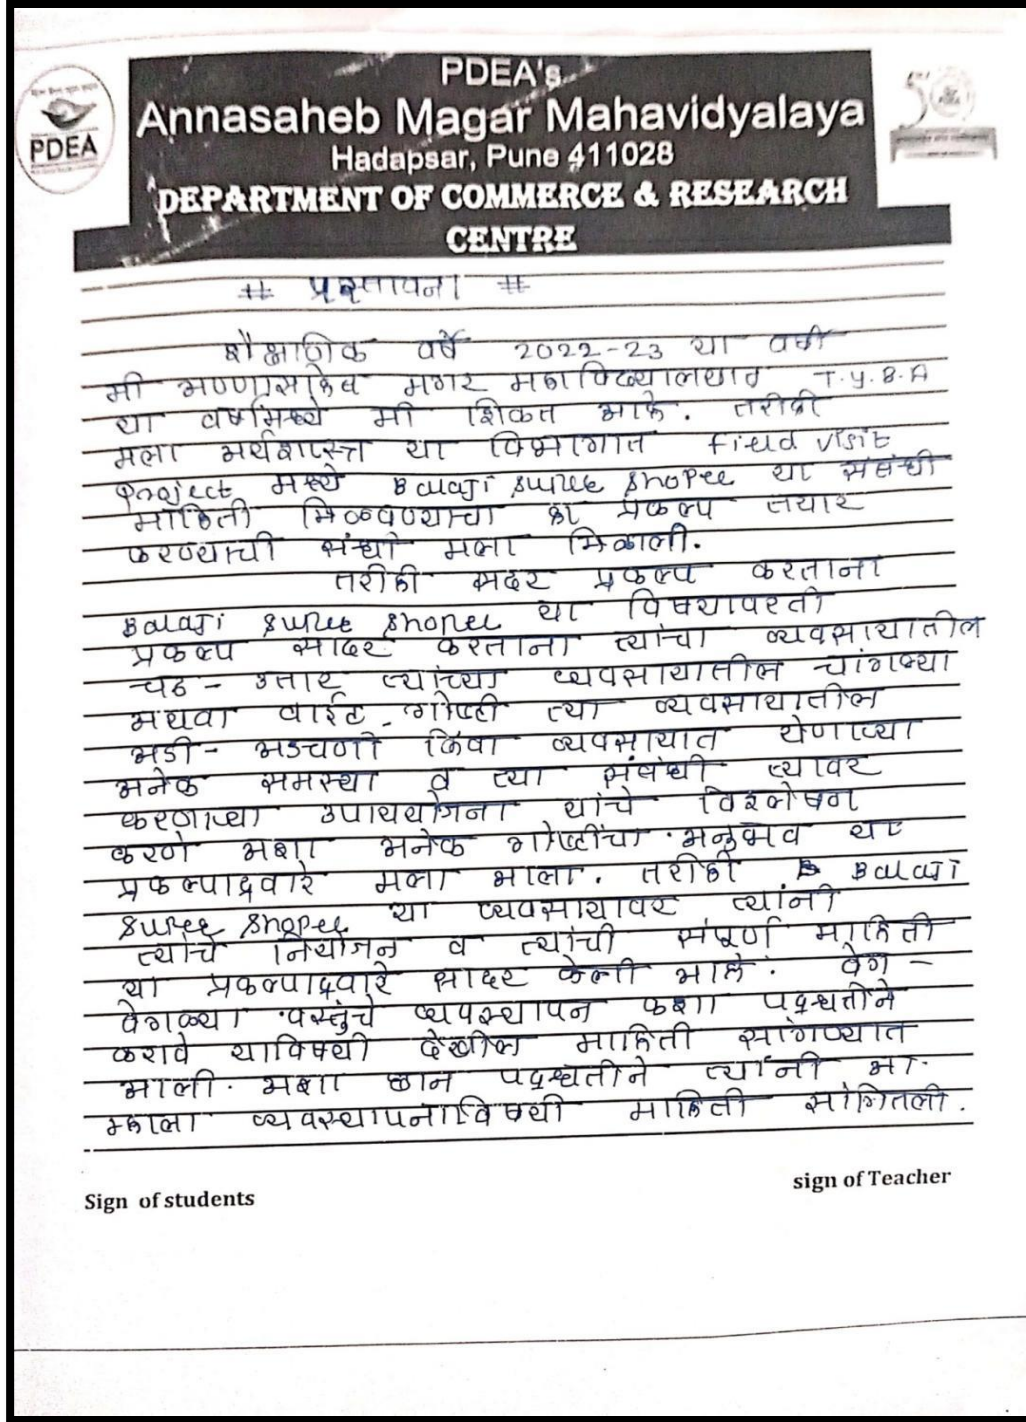 PDEA's
Annasaheb Magar Mahavidyalaya
Hadapsar, Pune 411028
DEPARTMENT OF COMMERCE & RESEARCH
CENTRE
PDEA
# प्रस्तावना #
शैक्षाणिक वर्षे 2022-23 या वर्षी
मी अण्णासाहेब मगर महाविद्यालयात T.y.B.A
या वर्षामध्ये मी शिकत आहे. तरीही
मला अर्थशास्त्र या विभागात field visit
Project मध्ये Balaji Suree Shopee या संबंधी
माहिती मिळवण्याचा हा प्रकल्प तयार
करण्याची संधी मला मिळाली.
तरीही सदर प्रकल्प करताना
Balaji Suree Shopee या विषयावरती
प्रकल्प सादर करताना त्यांचा व्यवसायातील
चढ - उतार त्यांच्या व्यवसायातील चांगल्या
अथवा वाईट गोष्टी त्या व्यवसायातील
अडी - अडचणी किंवा व्यवसायात येणाऱ्या
अनेक समस्या व त्या संबंधी त्यावर
करणाऱ्या उपाययोजना यांचे विश्लेषण
करणे अशा अनेक गोष्टींचा अनुभव या
प्रकल्पाद्वारे मला आला. तरीही Balaji
Suree Shopee या व्यवसायावर त्यांनी
त्यांचे नियोजन व त्यांची संपूर्ण माहिती
या प्रकल्पाद्वारे सादर केली आहे. वेग -
वेगळ्या वस्तुंचे व्यवस्थापन कशा पद्धतीने
करावे याविषयी देखील माहिती सांगण्यात
आली. अशा छान पद्धतीने त्यांनी आ-
म्हाला व्यवस्थापनाविषयी माहिती सांगितली.
Sign of students
sign of Teacher